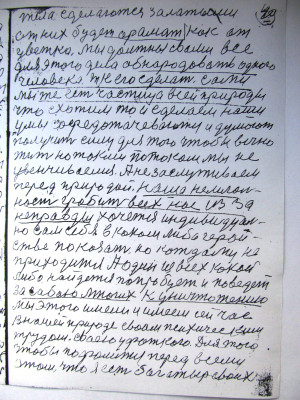 тела сделаготся залатыми
от них будет аромат как от
цветка, мы должны свами все
для этого дела обнародовать одного
человека тк его сделат. сами
мы те гет частица всей природы
что схотим то и сделаем наши
умы
получит силу для того чтобы вычно
жит но таким потоком мы не
увеличиваемся. А не заслуживаем
перед природой. наша нелегон-
ност гробит всех нас из за
неправды хочется индивидуал-
но сам себя в коком либо герой-
стве показат но кождаму не
приходится Аодин из всех какой
либо найдется попробует и поведет
за сабаю многих к уничтожению
мы этого имели и имеем сей час
В нашей природе своим психическим
трудом. своего уроткого. Для этого
чтобы подумит перед всеми
этом, что я ест багатыр своих